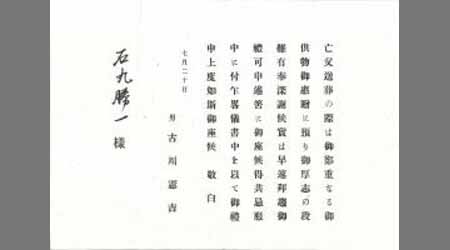 亡父送葬の際は御鄭重なる御
供物御惠贈に預り御厚志の段
難有奉深謝候實は早速拜趨御
禮可申述筈に御座候得共忌服
中に付乍畧儀書中を以て御禮
申上度如斯御座候 敬白
七月二十日
男 古川憲吉
石丸勝一 様